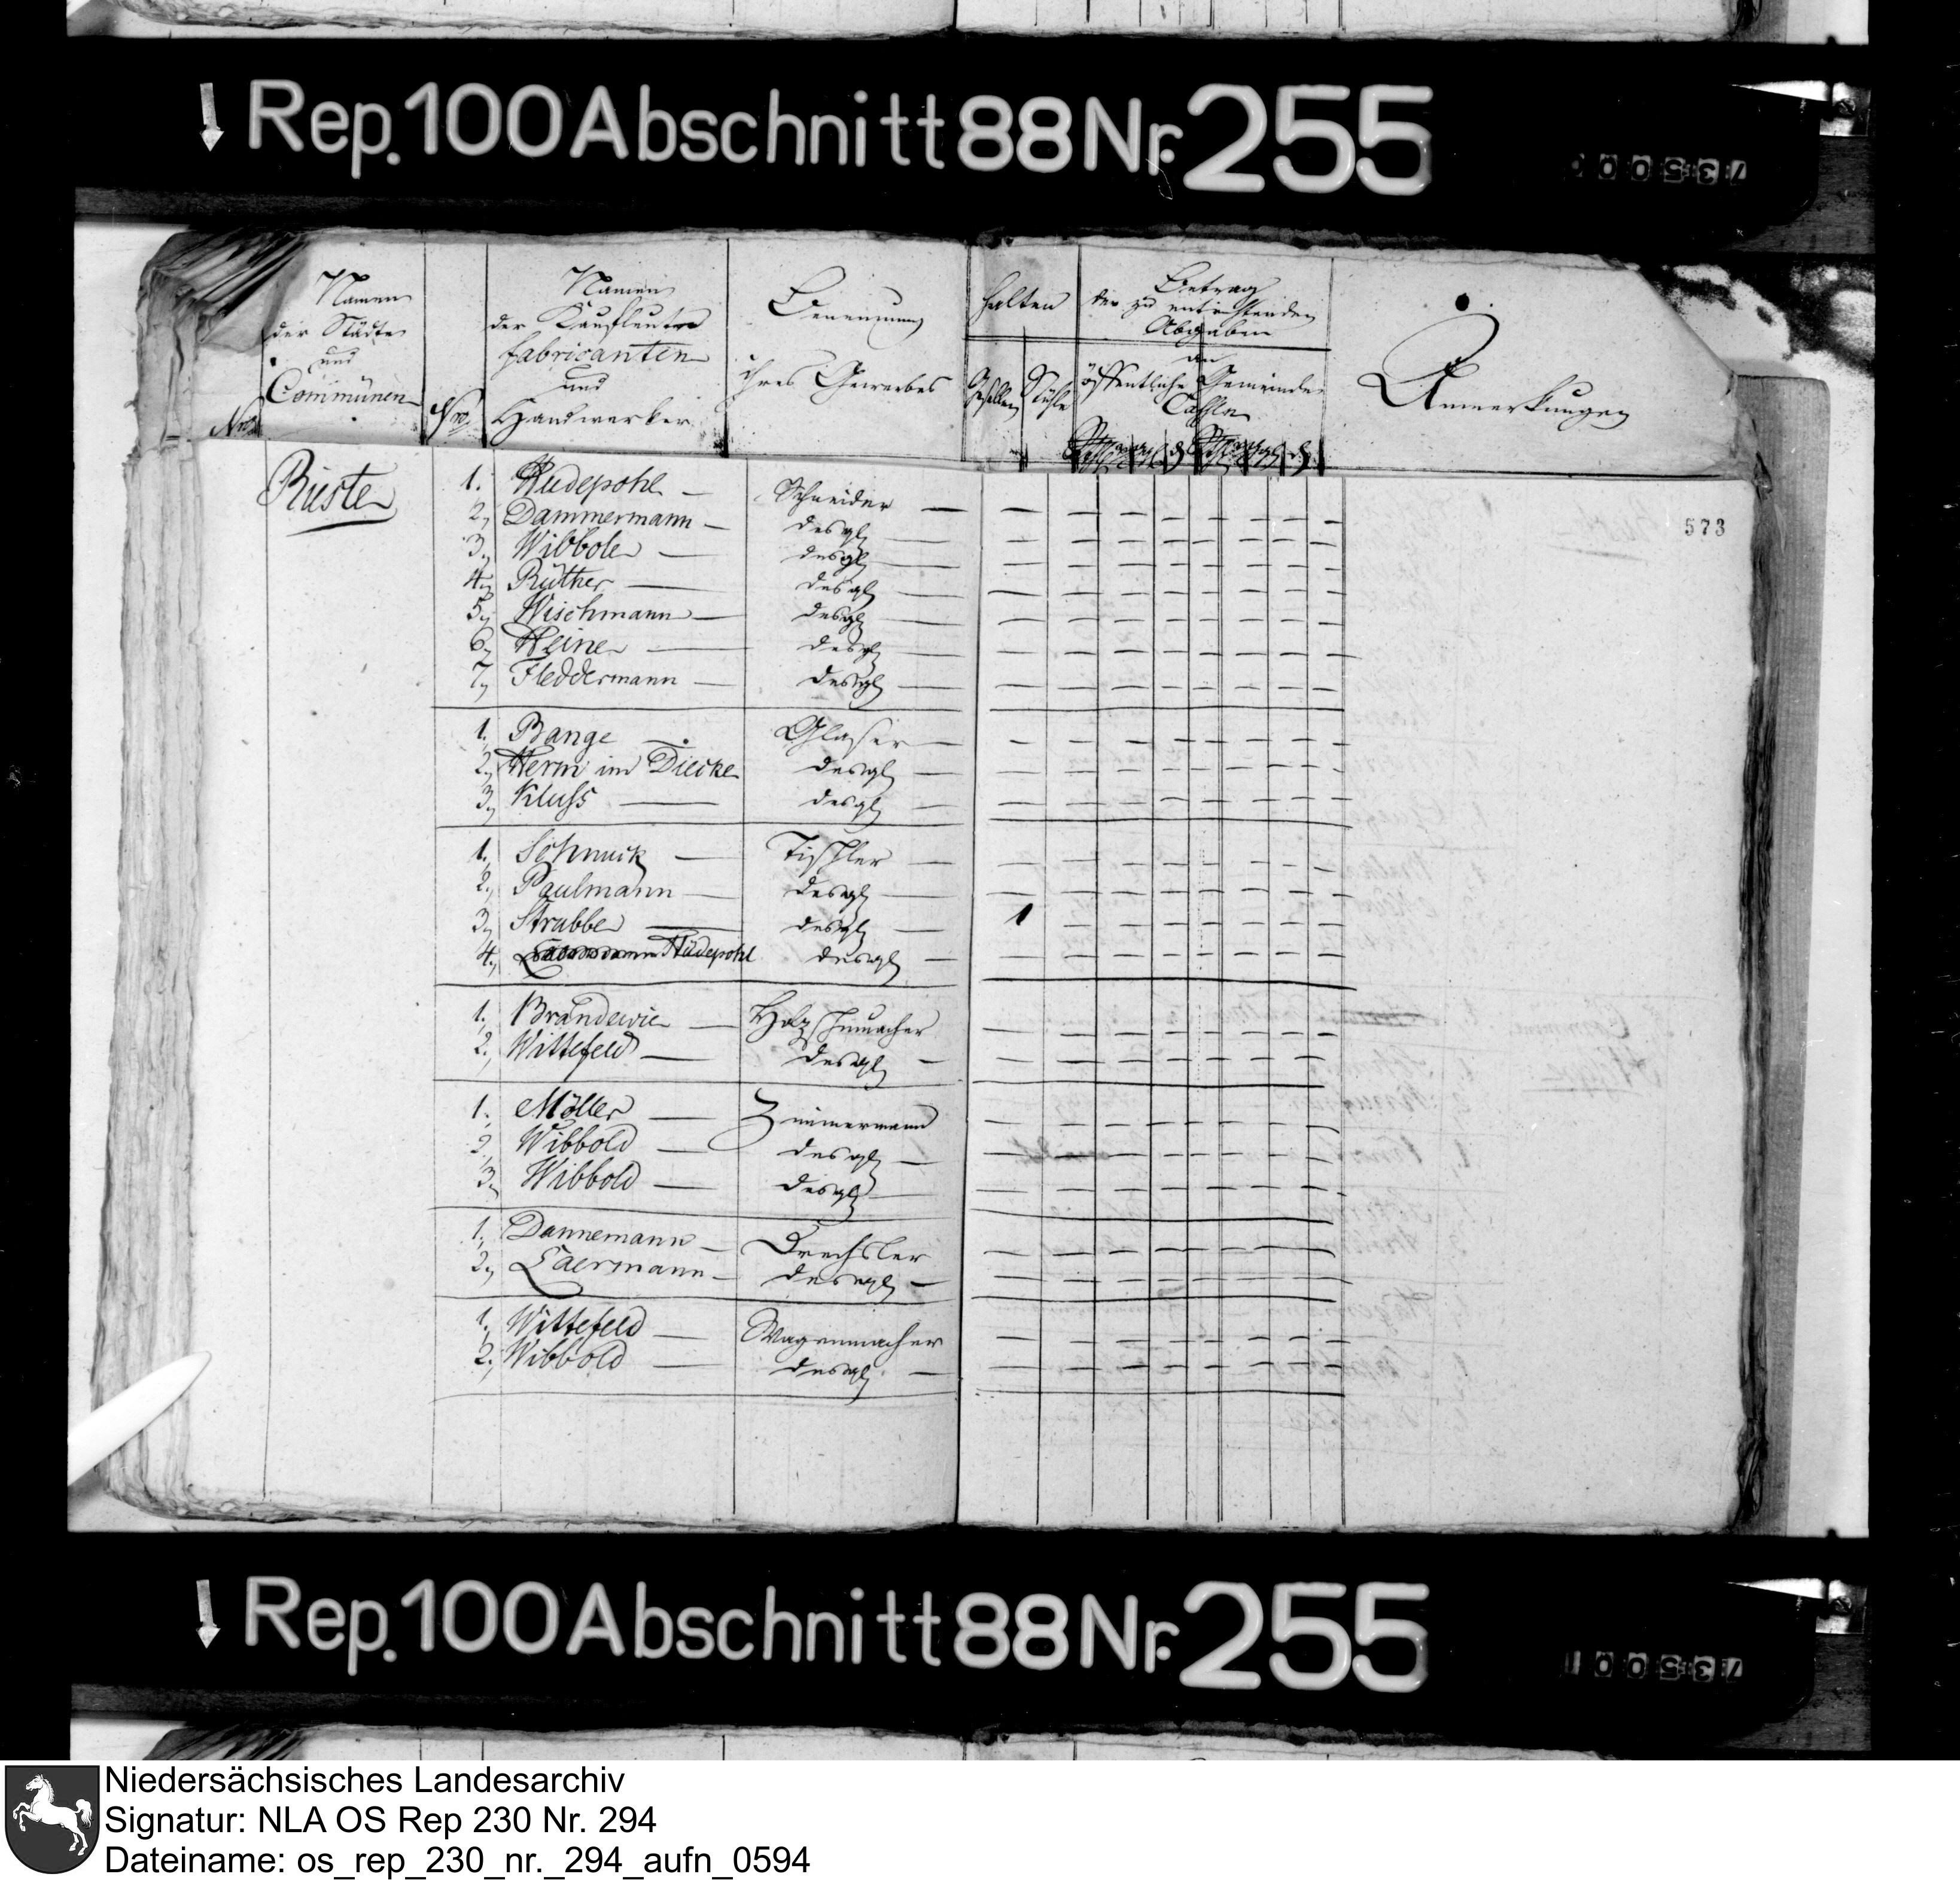 Rep. 100 Abschnitt 88 Nr. 255
Namen
der Städte
und
Communen
Nro
Nro
Namen
der Kaufleute
fabricanten
und
Handwerker
Benennung
ihres Gewerbes
halten
Gesellen
Stühle
Betrag
der zu entrichtenden
Abgaben
an
öffentliche Gemeinde
Cassen
Anmerkungen
573
Rüste
1. Hudepohl — Schneider —
2, Dammermann — desgl —
3, Wibbole — desgl —
4, Rüther — desgl —
5, Wischmann — desgl —
6, Heine — desgl —
7, Fleddermann — desgl —
1. Bange — Glaser —
2, Herm im Diecke desgl —
3, Kluss — desgl —
1. Schmuck — Tischler —
2, Paulmann — desgl —
3, Strubbe — desgl — 1
4, Hüdepohl desgl —
1. Brandewie — Holzschumacher
2. Wittefeld — desgl —
1. Möller — Zimmermann
2, Wibbold — desgl —
3. Wibbold — desgl —
1. Dannemann — Drechsler
2, Laermann — desgl —
1. Wittefeld — Wagenmacher
2. Wibbold — desgl. —
Rep. 100 Abschnitt 88 Nr. 255
Niedersächsisches Landesarchiv
Signatur: NLA OS Rep 230 Nr. 294
Dateiname: os_rep_230_nr._294_aufn_0594